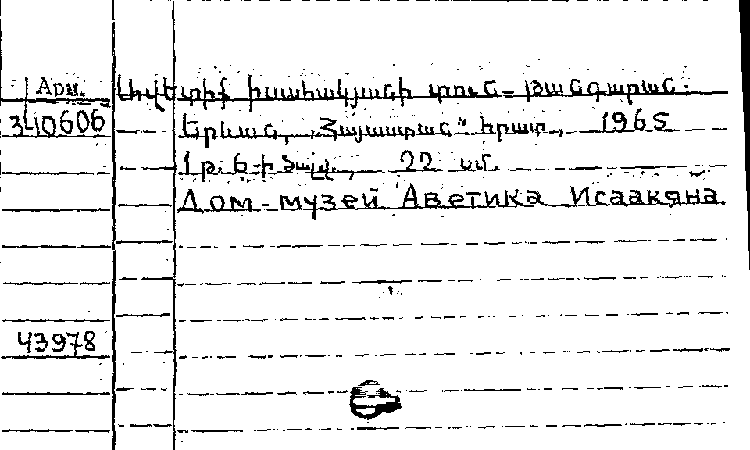 Арм. Ավետիք Իսահակյանի տուն-թանգարան.
340606 Երևան, „Հայաստան" հրատ., 1965
1 թ. 6-ի ծալվ., 22 սմ.
Дом-музей Аветика Исаакяна.
43978